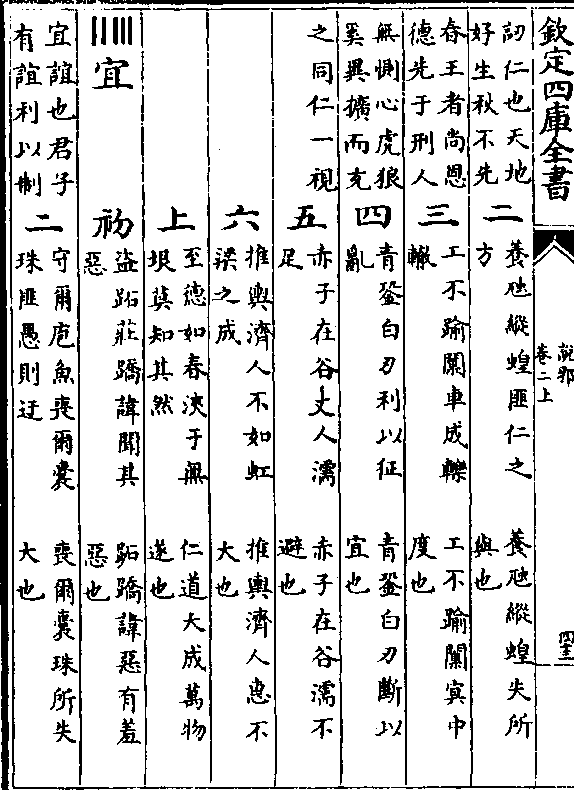 欽定四庫全書
說郛
卷二上
訒仁也天地
好生秋不先
二
養虺縱蝗匪仁之
方
養虺縱蝗失所
與也
春王者尚恩
德先于刑人
三
工不踰闑車成轢
轍
工不踰闑寘中
度也
無惻心虎狼
奚異擴而充
四
青鋻白刃利以征
亂
青鋻白刃斷以
宜也
之同仁一視
五
赤子在谷丈人濡
足
赤子在谷濡不
避也
六
推輿濟人不如虹
梁之成
推輿濟人惠不
大也
上
至德如春浹于無
垠莫知其然
仁道大成萬物
遂也
宜
初
盜跖莊蹻諱聞其
惡
跖蹻諱惡有羞
惡也
宜誼也君子
有誼利以制
二
守爾庖魚喪爾囊
珠匪愚則迂
喪爾囊珠所失
大也